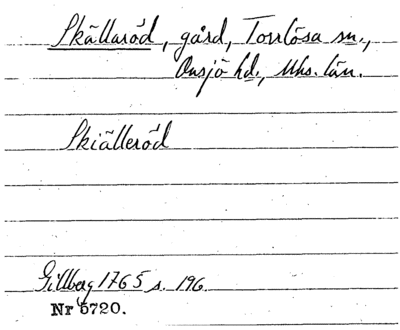 Skällaröd, gård, Torrlösa sn.,
Onsjö hd., Mhs. län.
Skiälleröd
Gillberg 1765 s. 196.
Nr 5720.